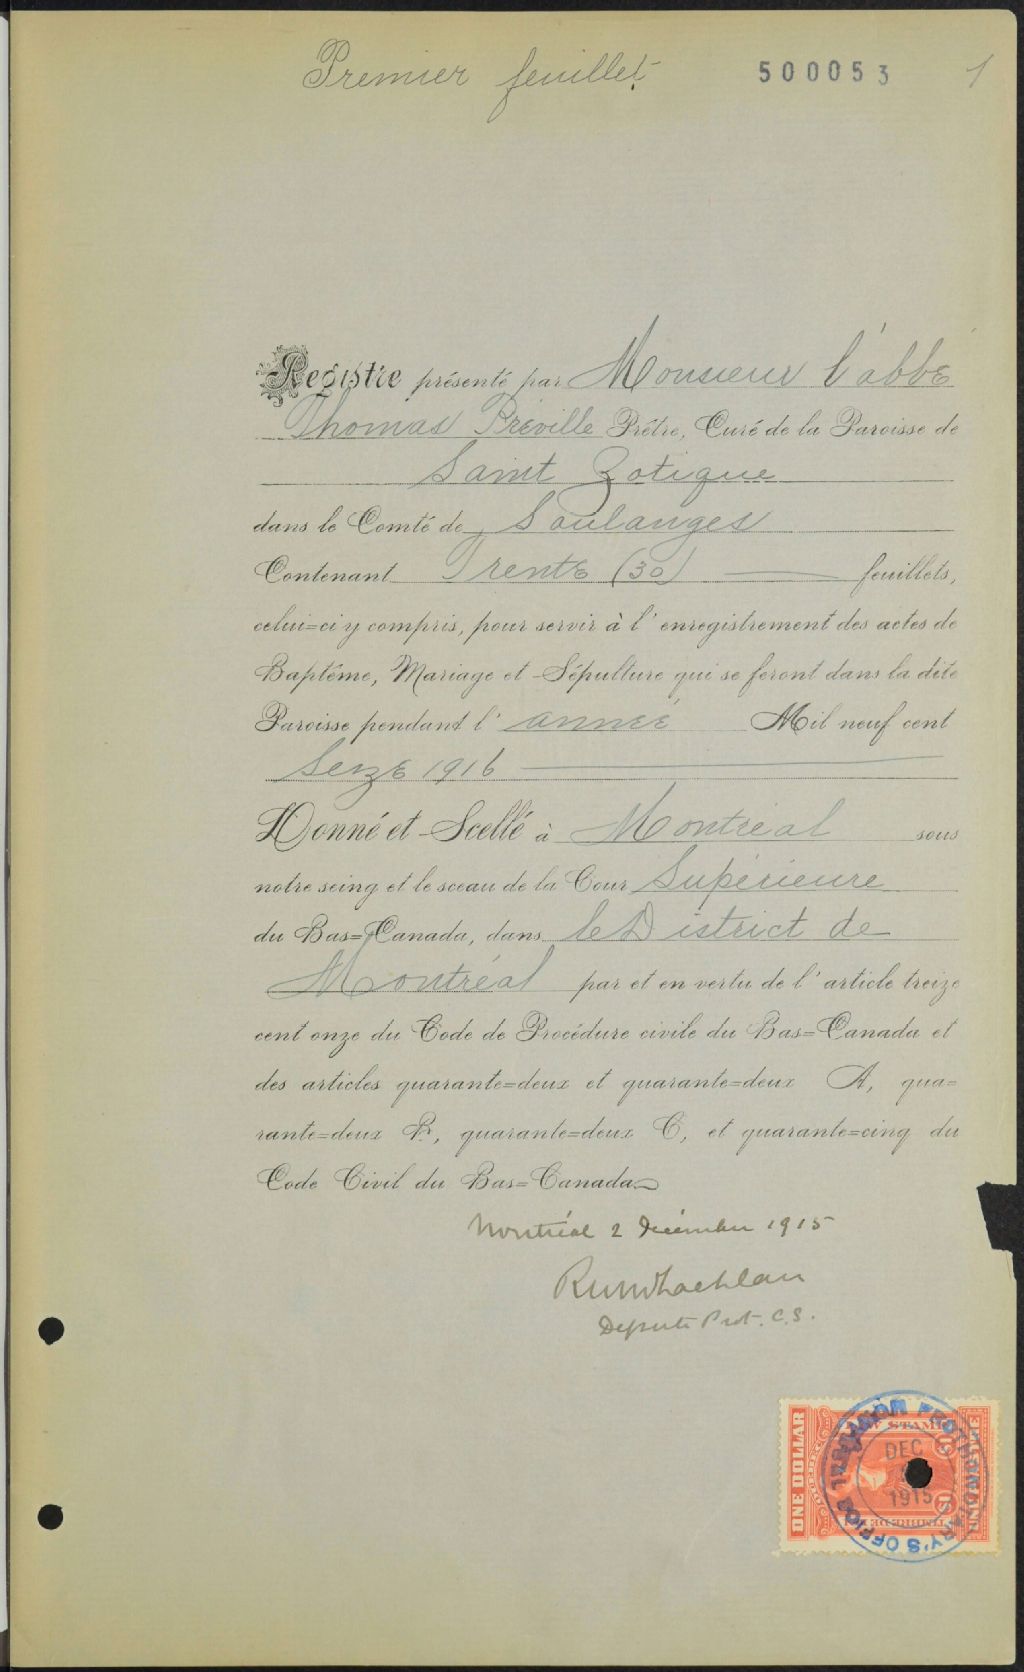 Premier feuillet 500053 1
Registre présenté par Monsieur l'abbé
Thomas Préville Prêtre, Curé de la Paroisse de
Saint Zotique
dans le Comté de Soulanges
Contenant Trente (30) feuillets,
celui=ci y compris, pour servir à l'enregistrement des actes de
Baptême, Mariage et Sépulture qui se feront dans la dite
Paroisse pendant l'année Mil neuf cent
Seize 1916
Donné et Scellé à Montréal sous
notre seing et le sceau de la Cour Supérieure
du Bas=Canada, dans le District de
Montréal par et en vertu de l'article treize
cent onze du Code de Procédure civile du Bas=Canada et
des articles quarante=deux et quarante=deux A, qua=
rante=deux B, quarante=deux C, et quarante=cinq du
Code Civil du Bas=Canada
Montréal 2 décembre 1915
Député Prot. C.S.
ONE DOLLAR
LAW STAMP
PROTHONOTARY'S OFFICE
DEC
1915